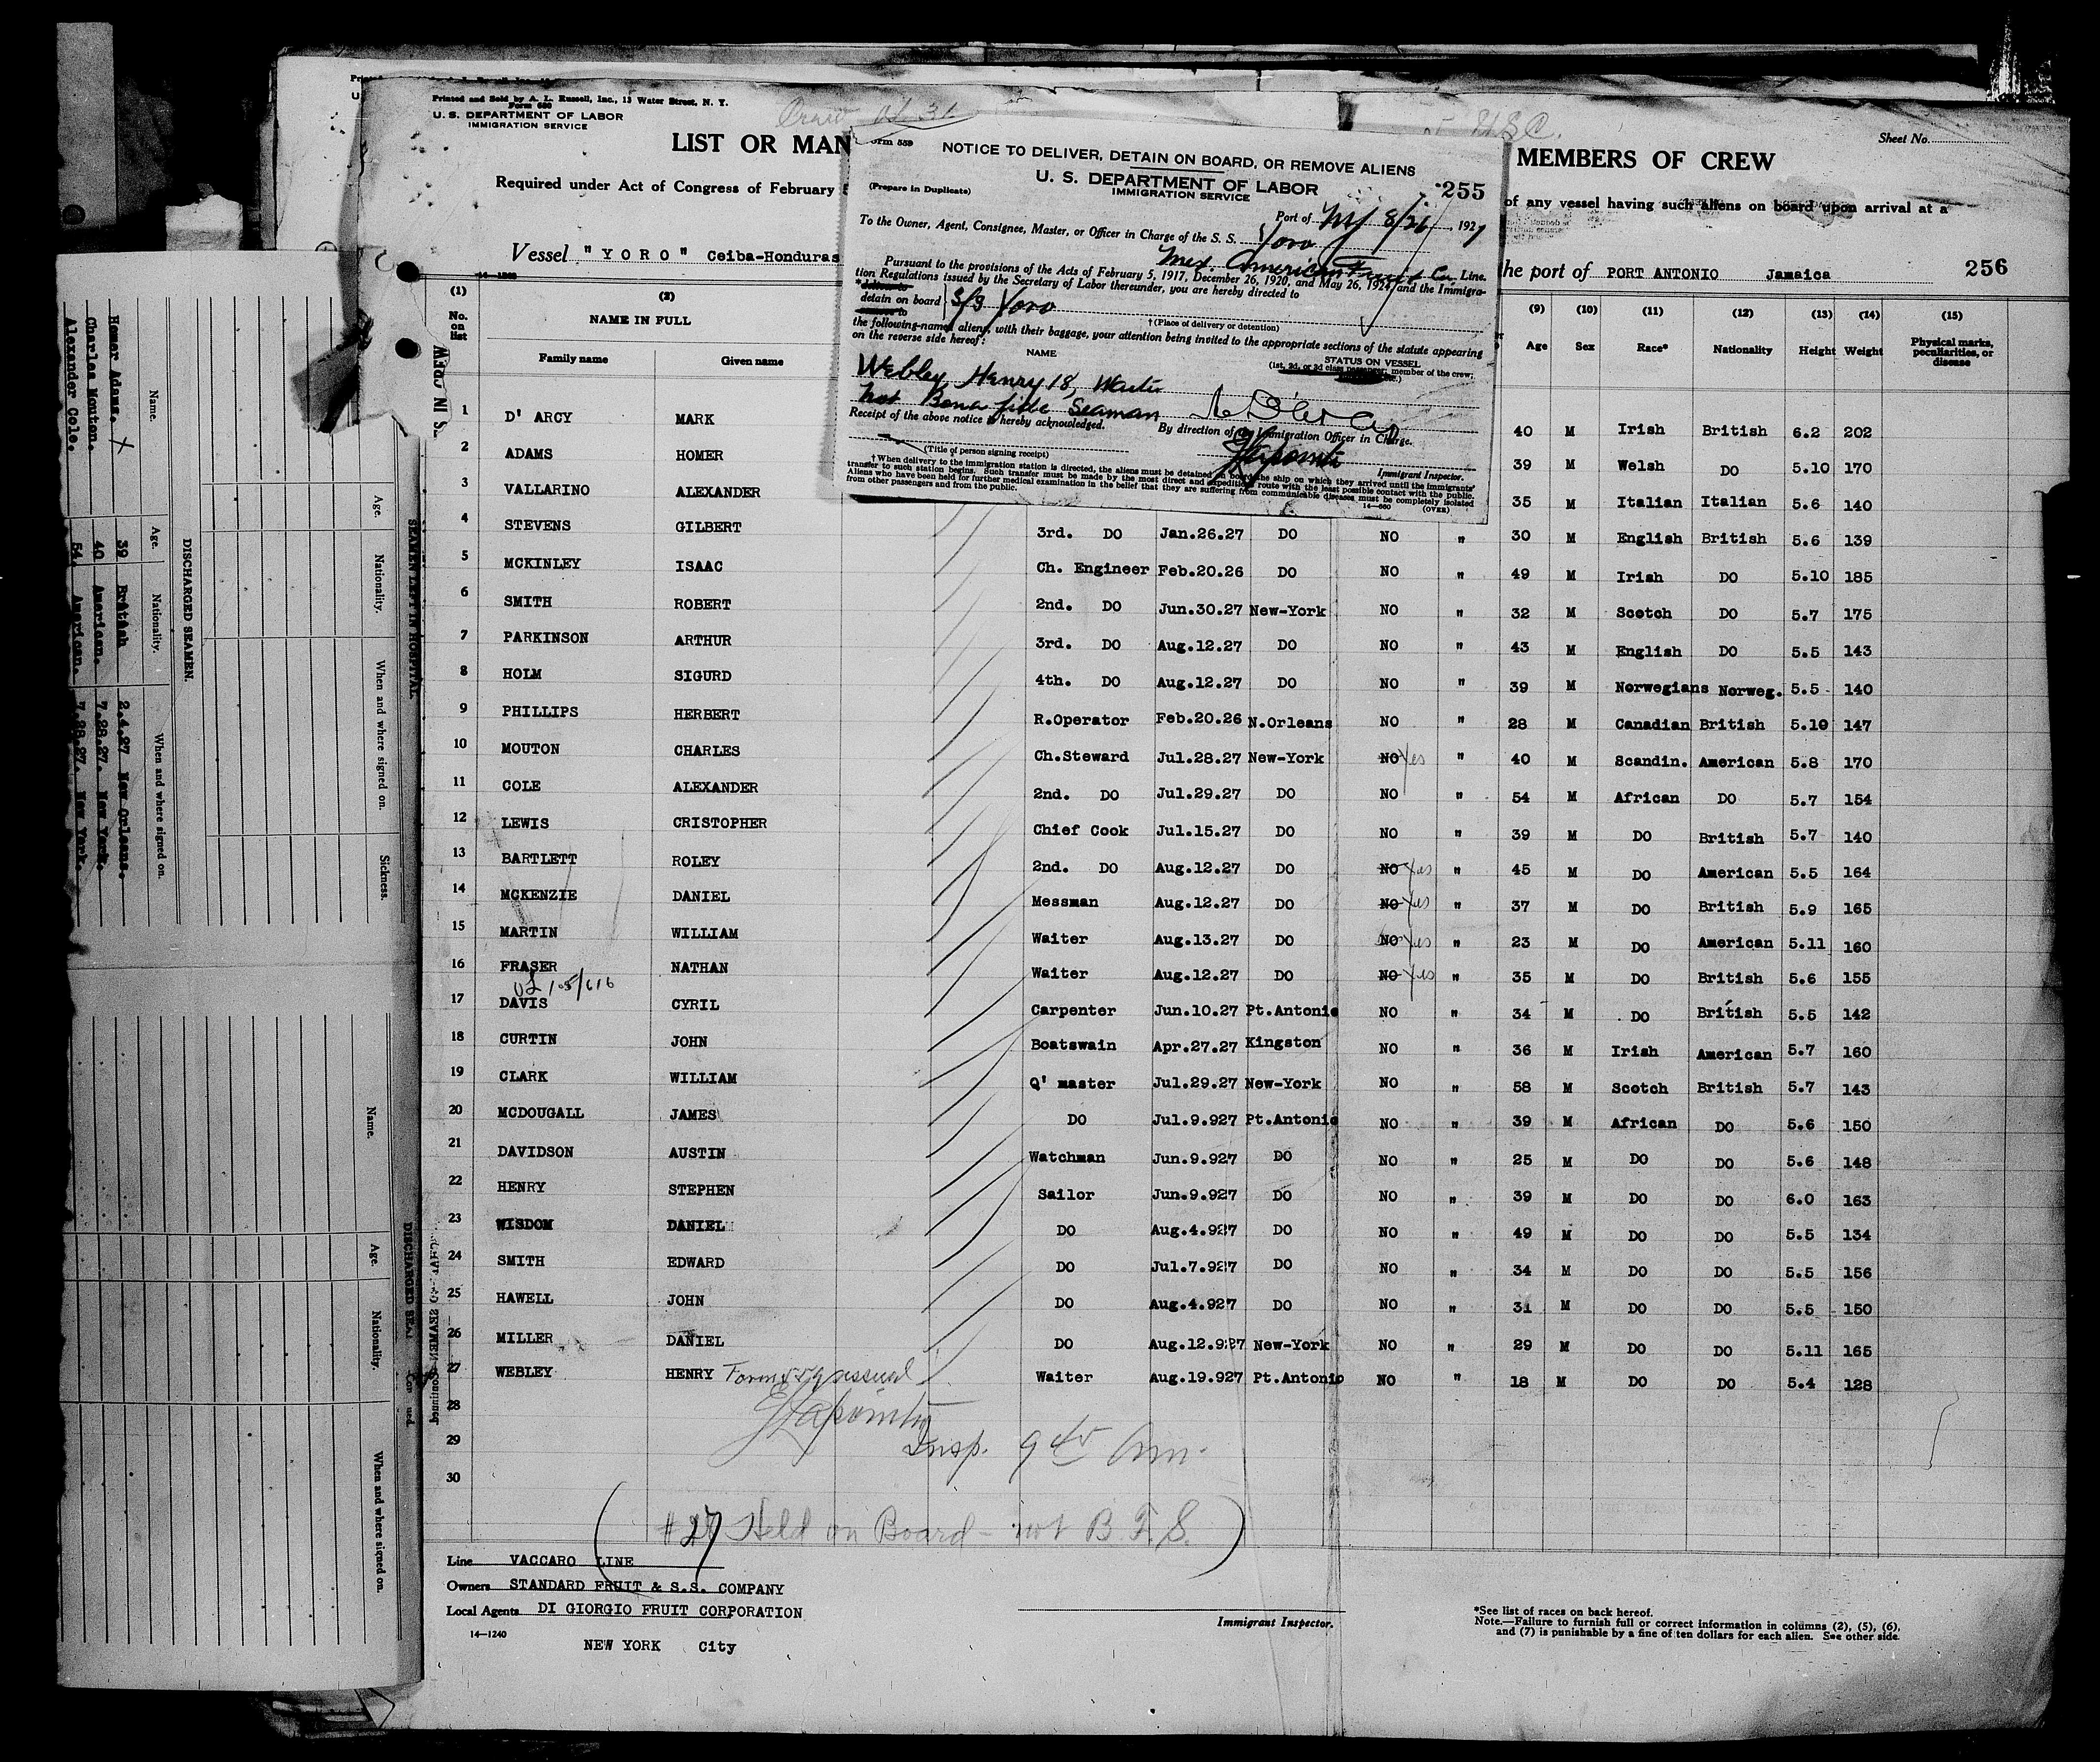 Printed and Sold by A. L. Russell, Inc., 13 Water Street, N. Y.
Form 680
U. S. DEPARTMENT OF LABOR
IMMIGRATION SERVICE
Sheet No.
LIST OR MAN
MEMBERS OF CREW
Required under Act of Congress of February
of any vessel having such aliens on board upon arrival at a
Vessel "YORO" Ceiba-Honduras
the port of PORT ANTONIO Jamaica
256
Form 559
NOTICE TO DELIVER, DETAIN ON BOARD, OR REMOVE ALIENS
U. S. DEPARTMENT OF LABOR
IMMIGRATION SERVICE
(Prepare in Duplicate)
255
Port of NY 8/26, 1927
To the Owner, Agent, Consignee, Master, or Officer in Charge of the S. S. Yoro
Mex. American Fruit Co. Line.
Pursuant to the provisions of the Acts of February 5, 1917, December 26, 1920, and May 26, 1924, and the Immigra-
tion Regulations issued by the Secretary of Labor thereunder, you are hereby directed to
*deliver to
detain on board S/S Yoro
remove to
†(Place of delivery or detention)
the following-named aliens, with their baggage, your attention being invited to the appropriate sections of the statute appearing
on the reverse side hereof:
NAME
STATUS ON VESSEL
(1st, 2d, or 3d class passenger; member of the crew;
Webley, Henry 18, Waiter
Not Bona fide Seaman
Receipt of the above notice is hereby acknowledged.
By direction of the Immigration Officer in Charge.
(Title of person signing receipt)
Immigrant Inspector.
†When delivery to the immigration station is directed, the aliens must be detained on board the ship on which they arrived until the immigrants'
transfer to such station begins. Such transfer must be made by the most direct and expeditious route with the least possible contact with the public.
Aliens who have been held for further medical examination in the belief that they are suffering from communicable diseases must be completely isolated
from other passengers and from the public.
14—680 (OVER)
(1) (2) (9) (10) (11) (12) (13) (14) (15)
No. on list NAME IN FULL Age Sex Race* Nationality Height Weight Physical marks, peculiarities, or disease
Family name Given name
1 D' ARCY MARK 40 M Irish British 6.2 202
2 ADAMS HOMER 39 M Welsh DO 5.10 170
3 VALLARINO ALEXANDER 35 M Italian Italian 5.6 140
4 STEVENS GILBERT 3rd. DO Jan.26.27 DO NO " 30 M English British 5.6 139
5 MCKINLEY ISAAC Ch. Engineer Feb.20.26 DO NO " 49 M Irish DO 5.10 185
6 SMITH ROBERT 2nd. DO Jun.30.27 New-York NO " 32 M Scotch DO 5.7 175
7 PARKINSON ARTHUR 3rd. DO Aug.12.27 DO NO " 43 M English DO 5.5 143
8 HOLM SIGURD 4th. DO Aug.12.27 DO NO " 39 M Norwegians Norweg. 5.5 140
9 PHILLIPS HERBERT R.Operator Feb.20.26 N.Orleans NO " 28 M Canadian British 5.10 147
10 MOUTON CHARLES Ch.Steward Jul.28.27 New-York NO Yes " 40 M Scandin. American 5.8 170
11 COLE ALEXANDER 2nd. DO Jul.29.27 DO NO " 54 M African DO 5.7 154
12 LEWIS CRISTOPHER Chief Cook Jul.15.27 DO NO " 39 M DO British 5.7 140
13 BARTLETT ROLEY 2nd. DO Aug.12.27 DO NO Yes " 45 M DO American 5.5 164
14 MCKENZIE DANIEL Messman Aug.12.27 DO NO Yes " 37 M DO British 5.9 165
15 MARTIN WILLIAM Waiter Aug.13.27 DO NO Yes " 23 M DO American 5.11 160
16 FRASER NATHAN Waiter Aug.12.27 DO NO Yes " 35 M DO British 5.6 155
105/616
17 DAVIS CYRIL Carpenter Jun.10.27 Pt.Antonio NO " 34 M DO British 5.5 142
18 CURTIN JOHN Boatswain Apr.27.27 Kingston NO " 36 M Irish American 5.7 160
19 CLARK WILLIAM Q' master Jul.29.27 New-York NO " 58 M Scotch British 5.7 143
20 MCDOUGALL JAMES DO Jul.9.927 Pt.Antonio NO " 39 M African DO 5.6 150
21 DAVIDSON AUSTIN Watchman Jun.9.927 DO NO " 25 M DO DO 5.6 148
22 HENRY STEPHEN Sailor Jun.9.927 DO NO " 39 M DO DO 6.0 163
23 WISDOM DANIEL DO Aug.4.927 DO NO " 49 M DO DO 5.5 134
24 SMITH EDWARD DO Jul.7.927 DO NO " 34 M DO DO 5.5 156
25 HAWELL JOHN DO Aug.4.927 DO NO " 31 M DO DO 5.5 150
26 MILLER DANIEL DO Aug.12.927 New-York NO " 29 M DO DO 5.11 165
27 WEBLEY HENRY Waiter Aug.19.927 Pt.Antonio NO " 18 M DO DO 5.4 128
28
29 Insp.
30
#27 Held on Board - not B.F.S.
Line VACCARO LINE
Owners STANDARD FRUIT & S.S. COMPANY
Local Agents DI GIORGIO FRUIT CORPORATION
14—1240
NEW YORK City
Immigrant Inspector.
*See list of races on back hereof.
Note.—Failure to furnish full or correct information in columns (2), (5), (6),
and (7) is punishable by a fine of ten dollars for each alien. See other side.
SEAMEN LEFT IN HOSPITAL
Age. Nationality. When and where signed on. Sickness.
DISCHARGED SEAMEN.
Name. Age. Nationality. When and where signed on.
Homer Adams. X 39 British 2.4.27 New Orleans.
Charles Mouton. 40 American. 7.28.27. New York.
Alexander Cole. 54. American. 7.28.27. New York.
Name. Age. Nationality. When and where signed on.